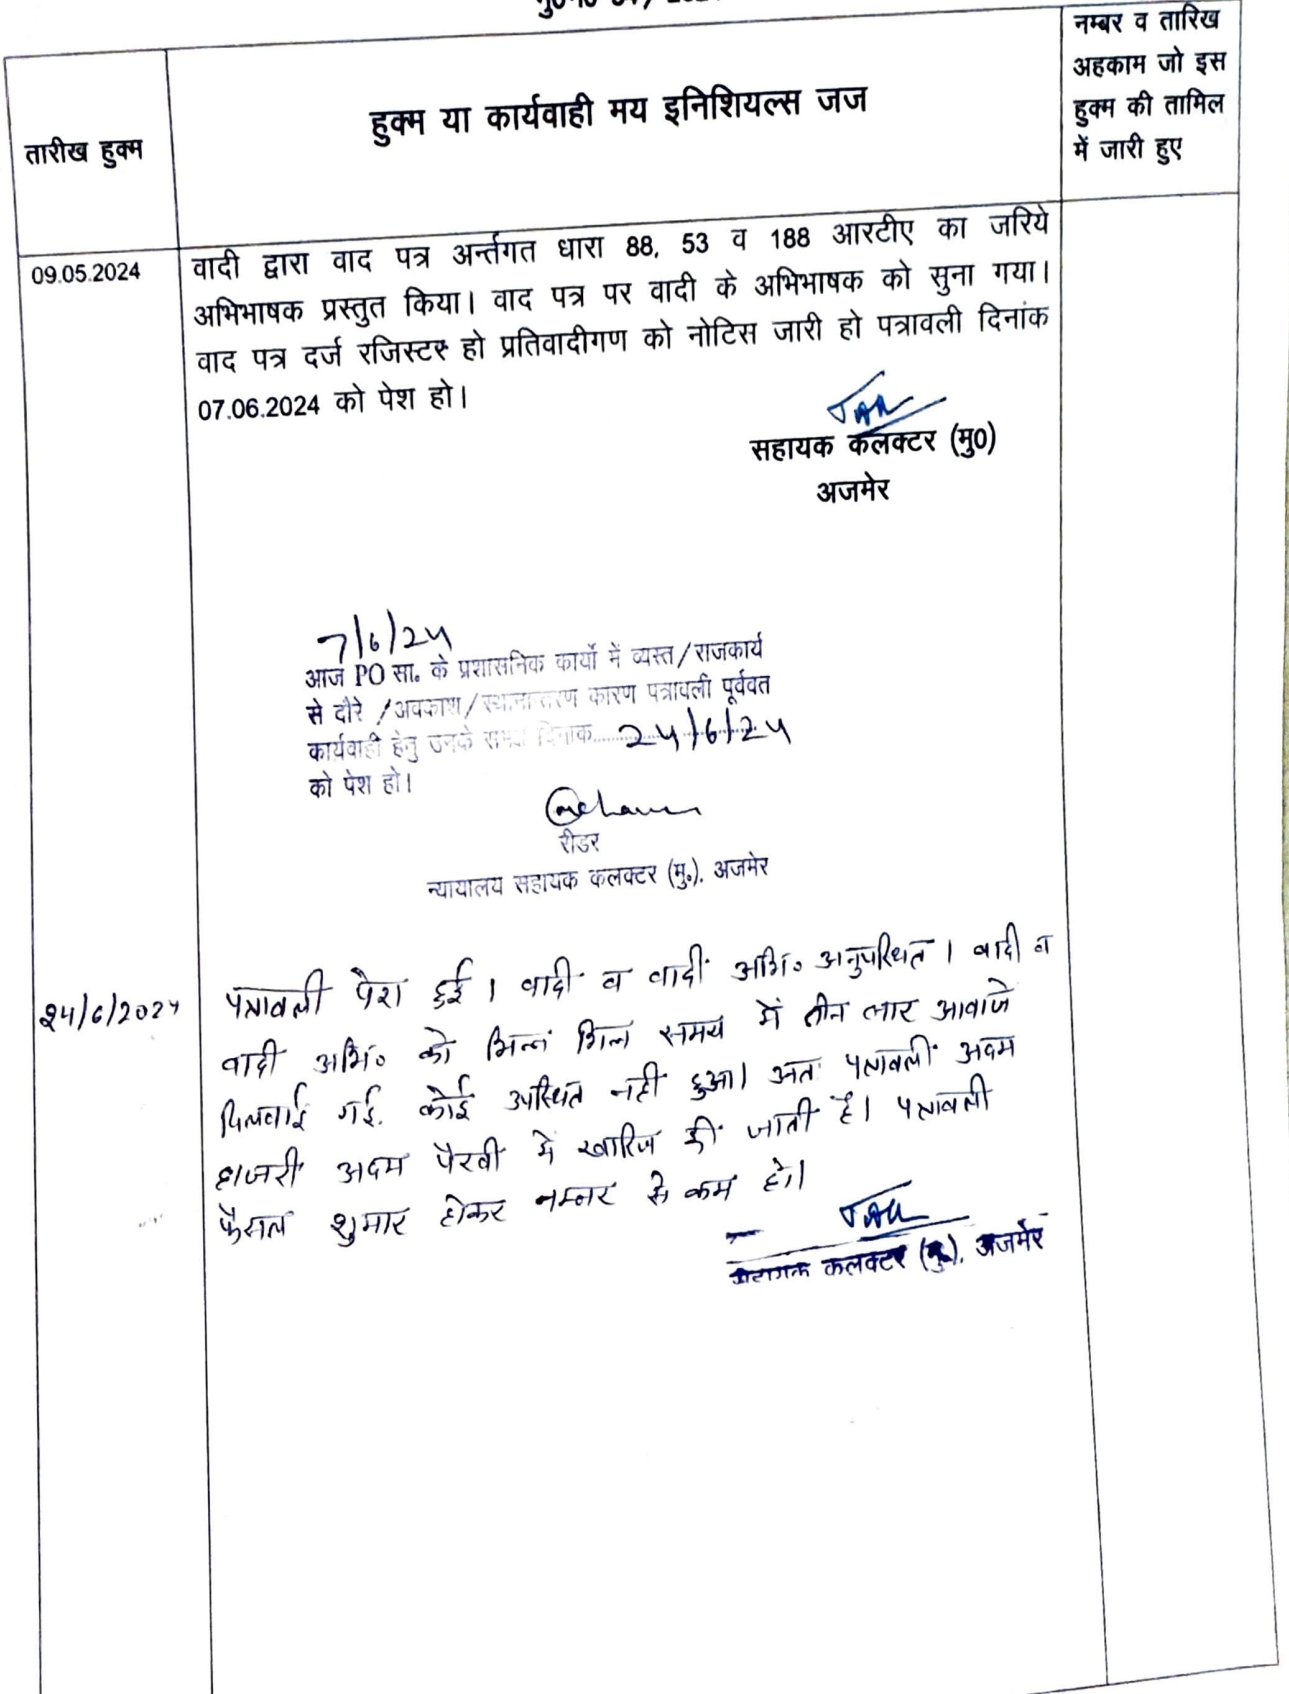 तारीख हुक्म
हुक्म या कार्यवाही मय इनिशियल्स जज
नम्बर व तारिख
अहकाम जो इस
हुक्म की तामिल
में जारी हुए
09.05.2024
वादी द्वारा वाद पत्र अर्न्तगत धारा 88, 53 व 188 आरटीए का जरिये
अभिभाषक प्रस्तुत किया। वाद पत्र पर वादी के अभिभाषक को सुना गया।
वाद पत्र दर्ज रजिस्टर हो प्रतिवादीगण को नोटिस जारी हो पत्रावली दिनांक
07.06.2024 को पेश हो।
सहायक कलक्टर (मु0)
अजमेर
7/6/24
आज PO सा. के प्रशासनिक कार्यो में व्यस्त/राजकार्य
से दौरे /अवकाश/स्थानान्तरण कारण पत्रावली पूर्ववत
कार्यवाही हेतु उनके समक्ष दिनांक.......24/6/24
को पेश हो।
रीडर
न्यायालय सहायक कलक्टर (मु.). अजमेर
24/6/2024
पत्रावली पेश हुई । वादी व वादी अभि० अनुपस्थित । वादी व
वादी अभि० को भिन्न भिन्न समय में तीन बार आवाजे
दिलवाई गई. कोई उपस्थित नही हुआ। अतः पत्रावली अदम
हाजरी अदम पैरवी में खारिज की जाती है। पत्रावली
फैसल शुमार होकर नम्बर से कम हो।
कलक्टर (मु.). अजमेर